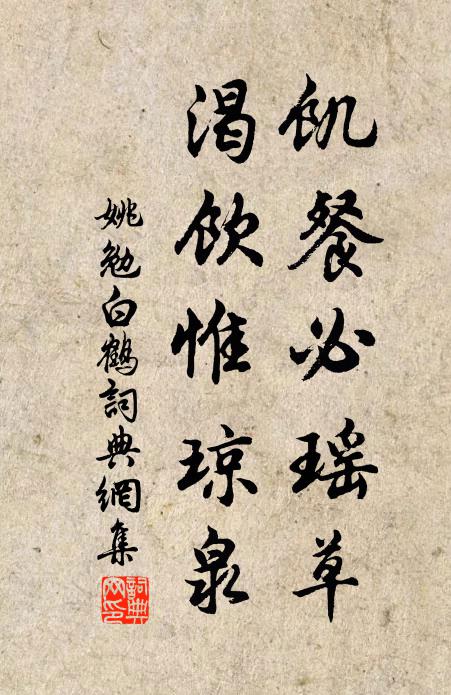 飢餐必瑶草
渴飲惟琼泉
姚勉白鶴詞典網集
詞典
网印